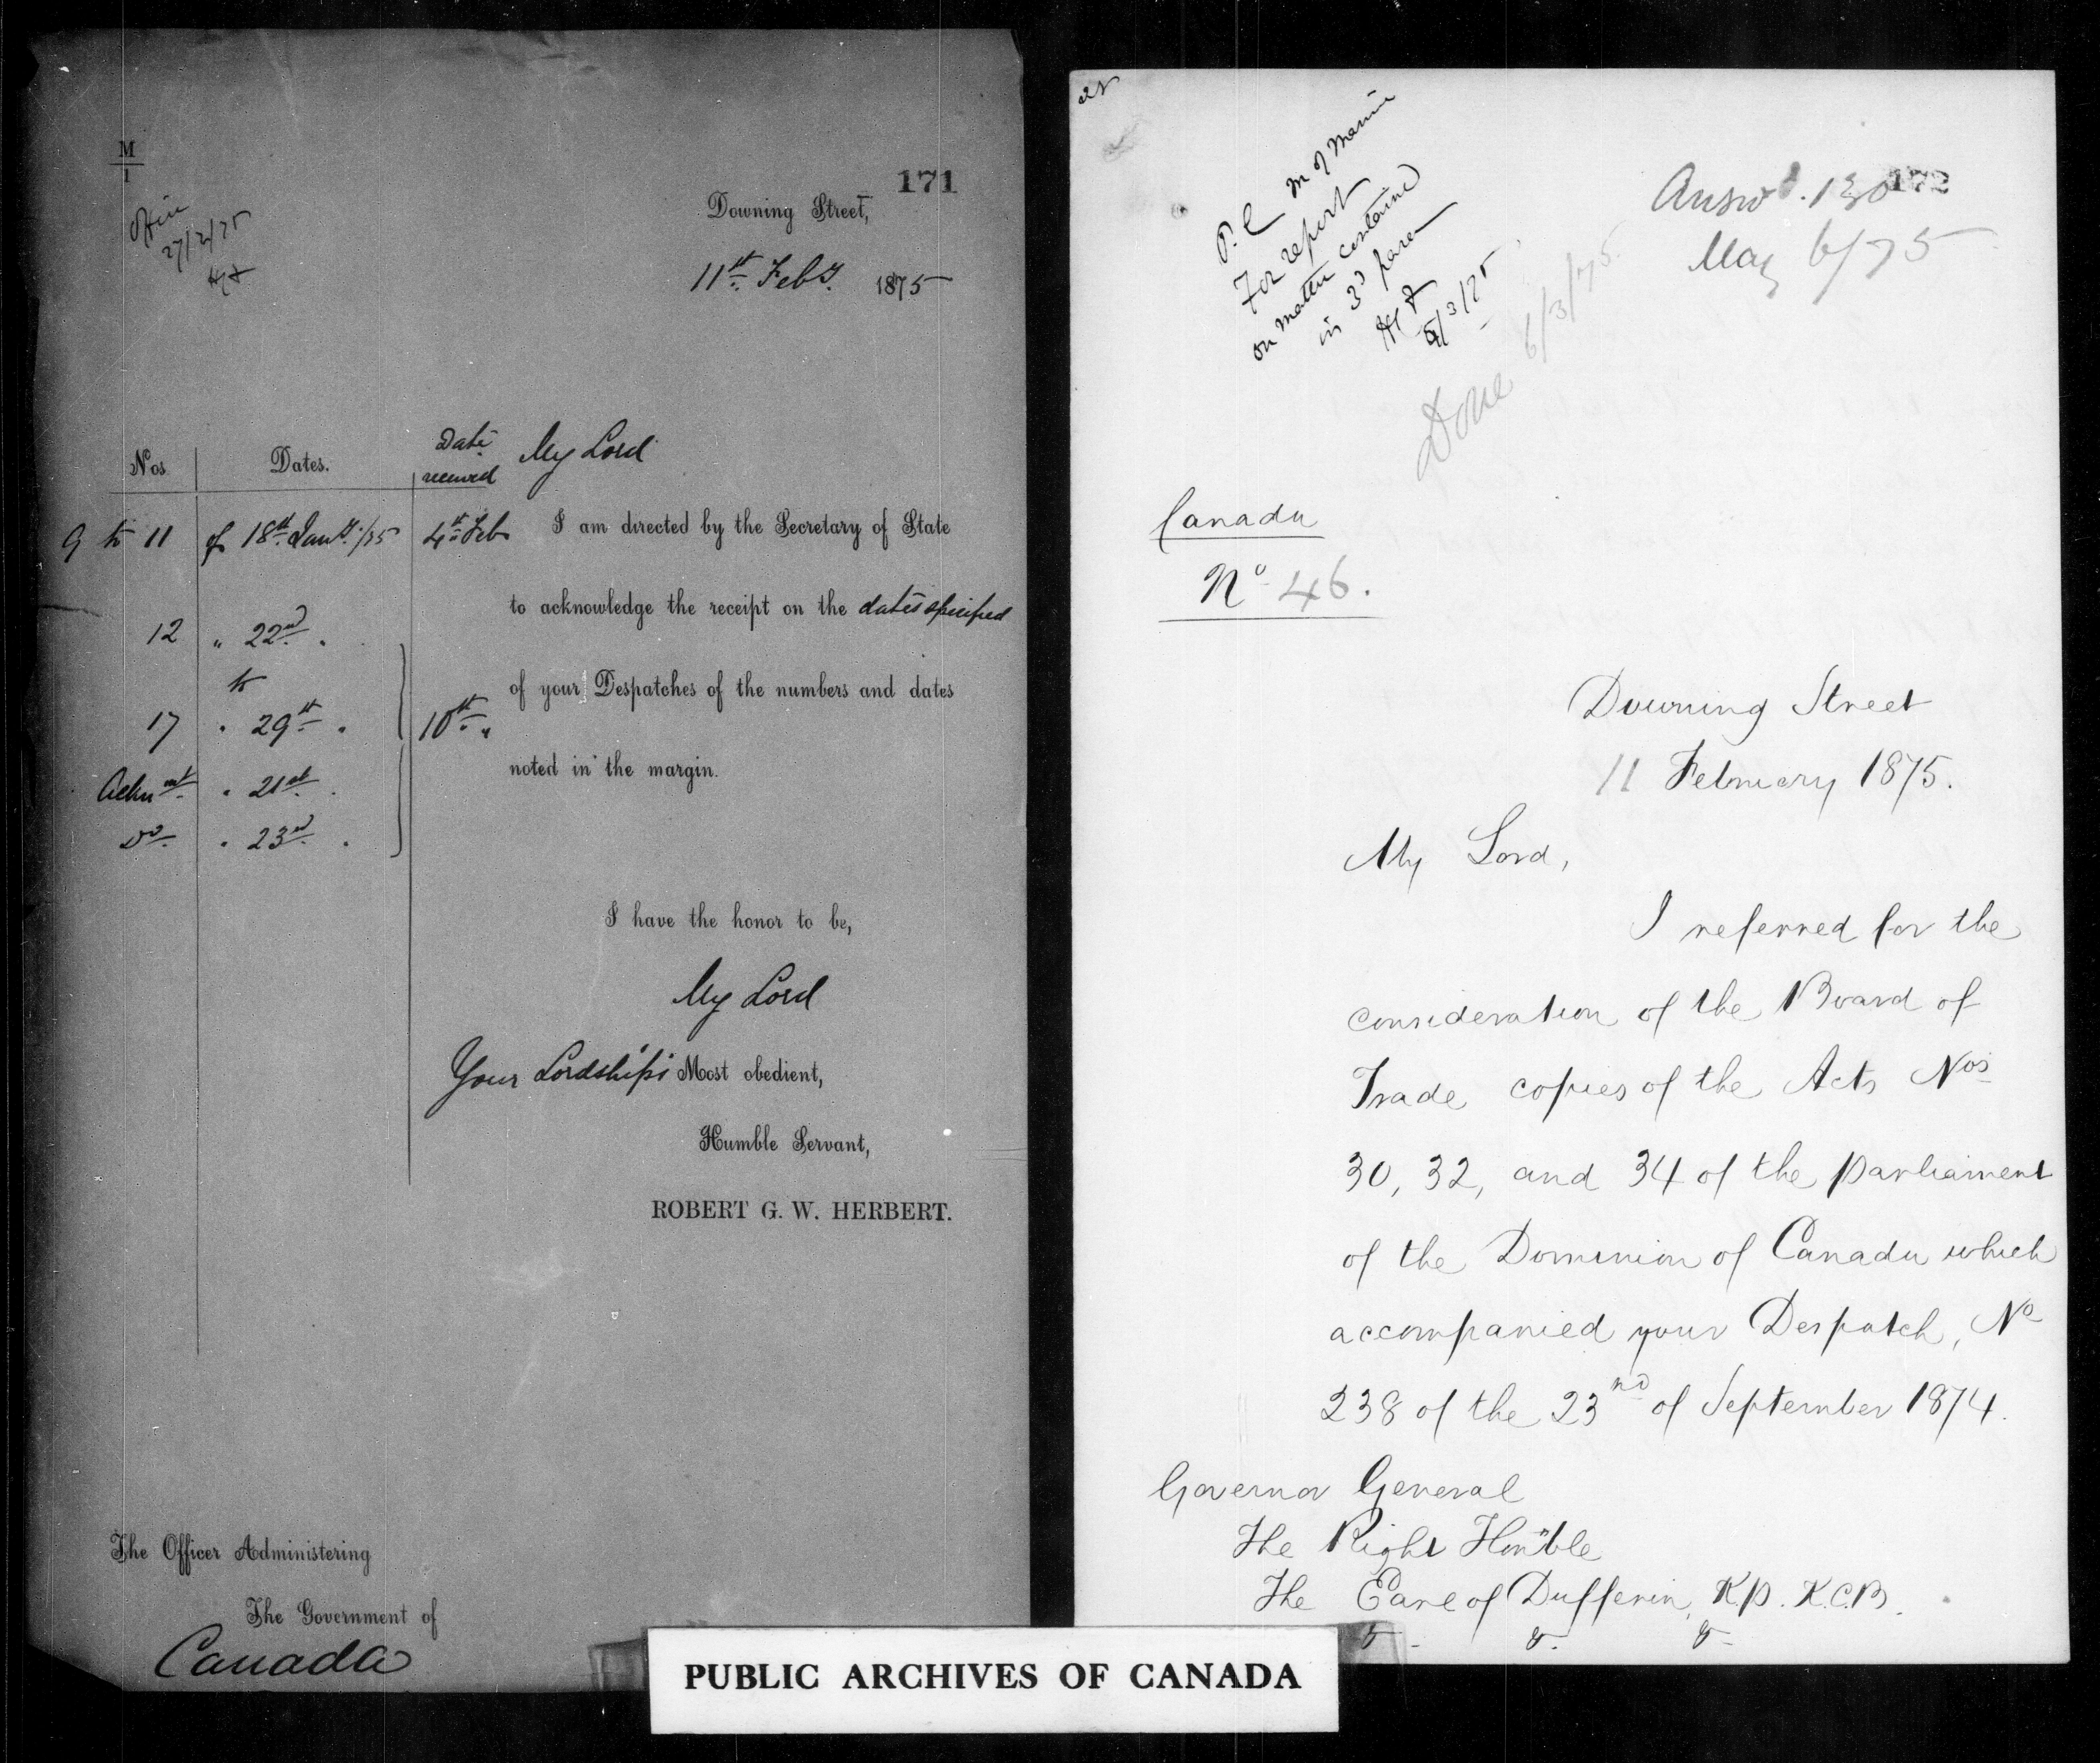 M
1
171
27/2/75
Downing Street,
11th Feby. 1875
Nos. Dates. Date received
My Lord
9 to 11 of 18th Jany. /75 4th Feb
I am directed by the Secretary of State
to acknowledge the receipt on the dates specified
12 " 22nd "
of your Despatches of the numbers and dates
to
17 " 29th " 10th "
noted in the margin.
Acknmt " 21st "
Do " 23rd "
I have the honor to be,
My Lord
Your Lordship's Most obedient,
Humble Servant,
ROBERT G. W. HERBERT.
The Officer Administering
The Government of
Canada
P.C M of Marine
For report
on matter contained
in 3d para
5/3/75
Done 6/3/75
Answd. 130
172
May 6/75
Canada
No 46.
Downing Street
11 February 1875.
My Lord,
I referred for the
consideration of the Board of
Trade copies of the Acts Nos
30, 32, and 34 of the parliament
of the Dominion of Canada which
accompanied your Despatch, No
238 of the 23rd of September 1874.
Governor General
The Right Honble
The Earl of Dufferin, K.P. K.C.B.
&. &. &.
PUBLIC ARCHIVES OF CANADA